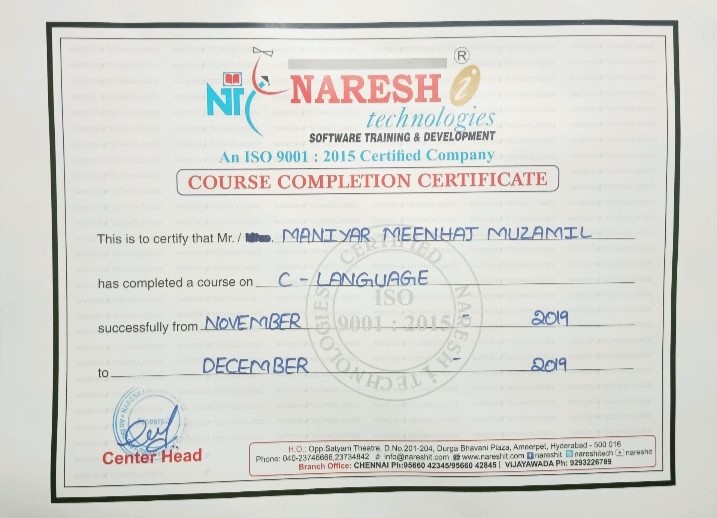 NT
NARESH i ®
technologies
SOFTWARE TRAINING & DEVELOPMENT
An ISO 9001 : 2015 Certified Company
COURSE COMPLETION CERTIFICATE
This is to certify that Mr. / MANIYAR MEENHAJ MUZAMIL
has completed a course on C - LANGUAGE
successfully from NOVEMBER - 2019
to DECEMBER - 2019
CERTIFIED
ISO
9001 : 2015
NARESH i TECHNOLOGIES
Center Head
H.O.: Opp.Satyam Theatre, D.No.201-204, Durga Bhavani Plaza, Ameerpet, Hyderabad - 500 016
Phone: 040-23746666,23734842 info@nareshit.com www.nareshit.com nareshit nareshitech nareshit
Branch Office: CHENNAI Ph:95660 42345/95660 42845 | VIJAYAWADA Ph: 9293226789